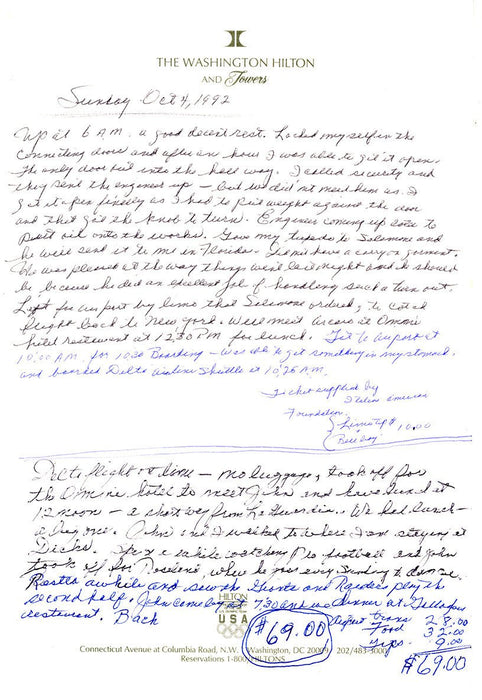 THE WASHINGTON HILTON
AND Towers
Sunday Oct 4, 1992
Up at 6 A.M. a good decent rest. Locked myself in the
connecting door and after an hour I was able to get it open.
The only door out into the hall way. I called security and
they sent the engineer up – but we did not need him as I
got it open finally as I had to put weight against the door
and that got the knob to turn. Engineer coming up later to
put oil into the works. Gave my tuxedo to Salamone and
he will send it to me in Florida. I didn't have a carry on garment.
He was pleased at the way things went last night and he should
be because he did an excellent job of handling such a turn out.
Left for airport by limo that Salamone ordered, to catch
flight back to New York. Will meet at Omni
hotel restaurant at 12:30 PM for lunch. Got to airport at
10:00 A.M. for 1030 Boarding – was able to get something in my stomach
and boarded Delta airline Shuttle at 10:25 AM.
Ticket supplied by
Italian American
Foundation.
Limo tip $
& Bell boy 10.00
Delta flight on time – no luggage, took off for
the Omni hotel to meet John and have lunch at
12 noon – a short way from La Guardia. We had lunch –
a long one. John and I walked to where I am staying at
Dicks. Spent a while watching Pro football and John
took off for Roseland, where he goes every Sunday to dance.
Rested awhile and saw the Giants and Raiders play the
second half. John came by at 7:30 and we dinner at
restaurant. Back
HILTON
USA
$69.00
Airport trans 28.00
Food 32.00
Tips 9.00
$69.00
Connecticut Avenue at Columbia Road, N.W. Washington, DC 20009 202/483-3000
Reservations 1-800-HILTONS